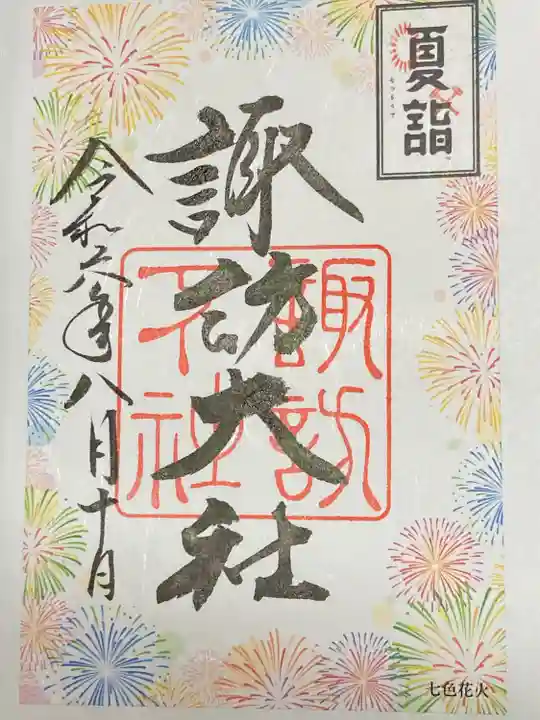 夏詣
なつもうで
諏訪大社
諏訪
大社
令和六年八月十日
七色花火